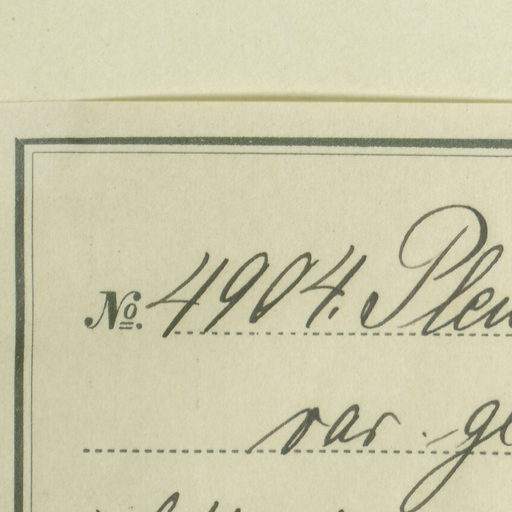 № 4904. Pleu
var. ge